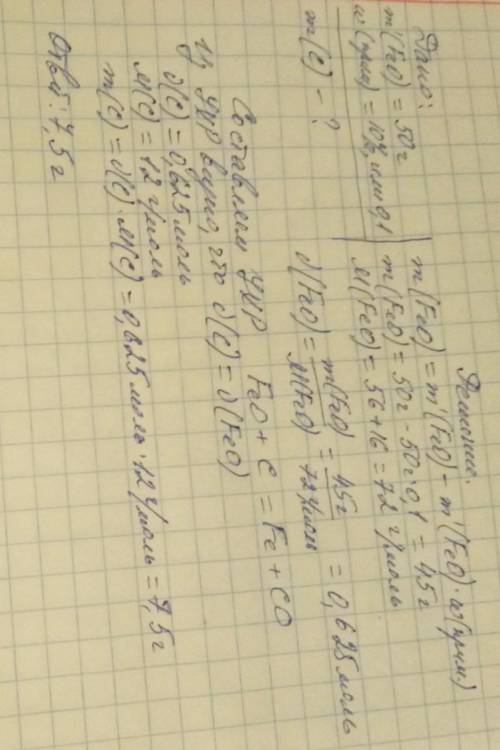 Дано:
m'(FeO) = 50г
w(прим) = 10%, или 0,1
m(C) - ?
Решение:
m(FeO) = m'(FeO) - m'(FeO)·w(прим)
m(FeO) = 50г - 50г·0,1 = 45г
M(FeO) = 56 + 16 = 72 г/моль
∂(FeO) = m(FeO)/M(FeO) = 45г/72 г/моль = 0,625 моль
Составляем УХР FeO + C = Fe + CO
Из УХР видно, что ∂(C) = ∂(FeO)
∂(C) = 0,625 моль
M(C) = 12 г/моль
m(C) = ∂(C)·M(C) = 0,625 моль·12 г/моль = 7,5г
Ответ: 7,5г